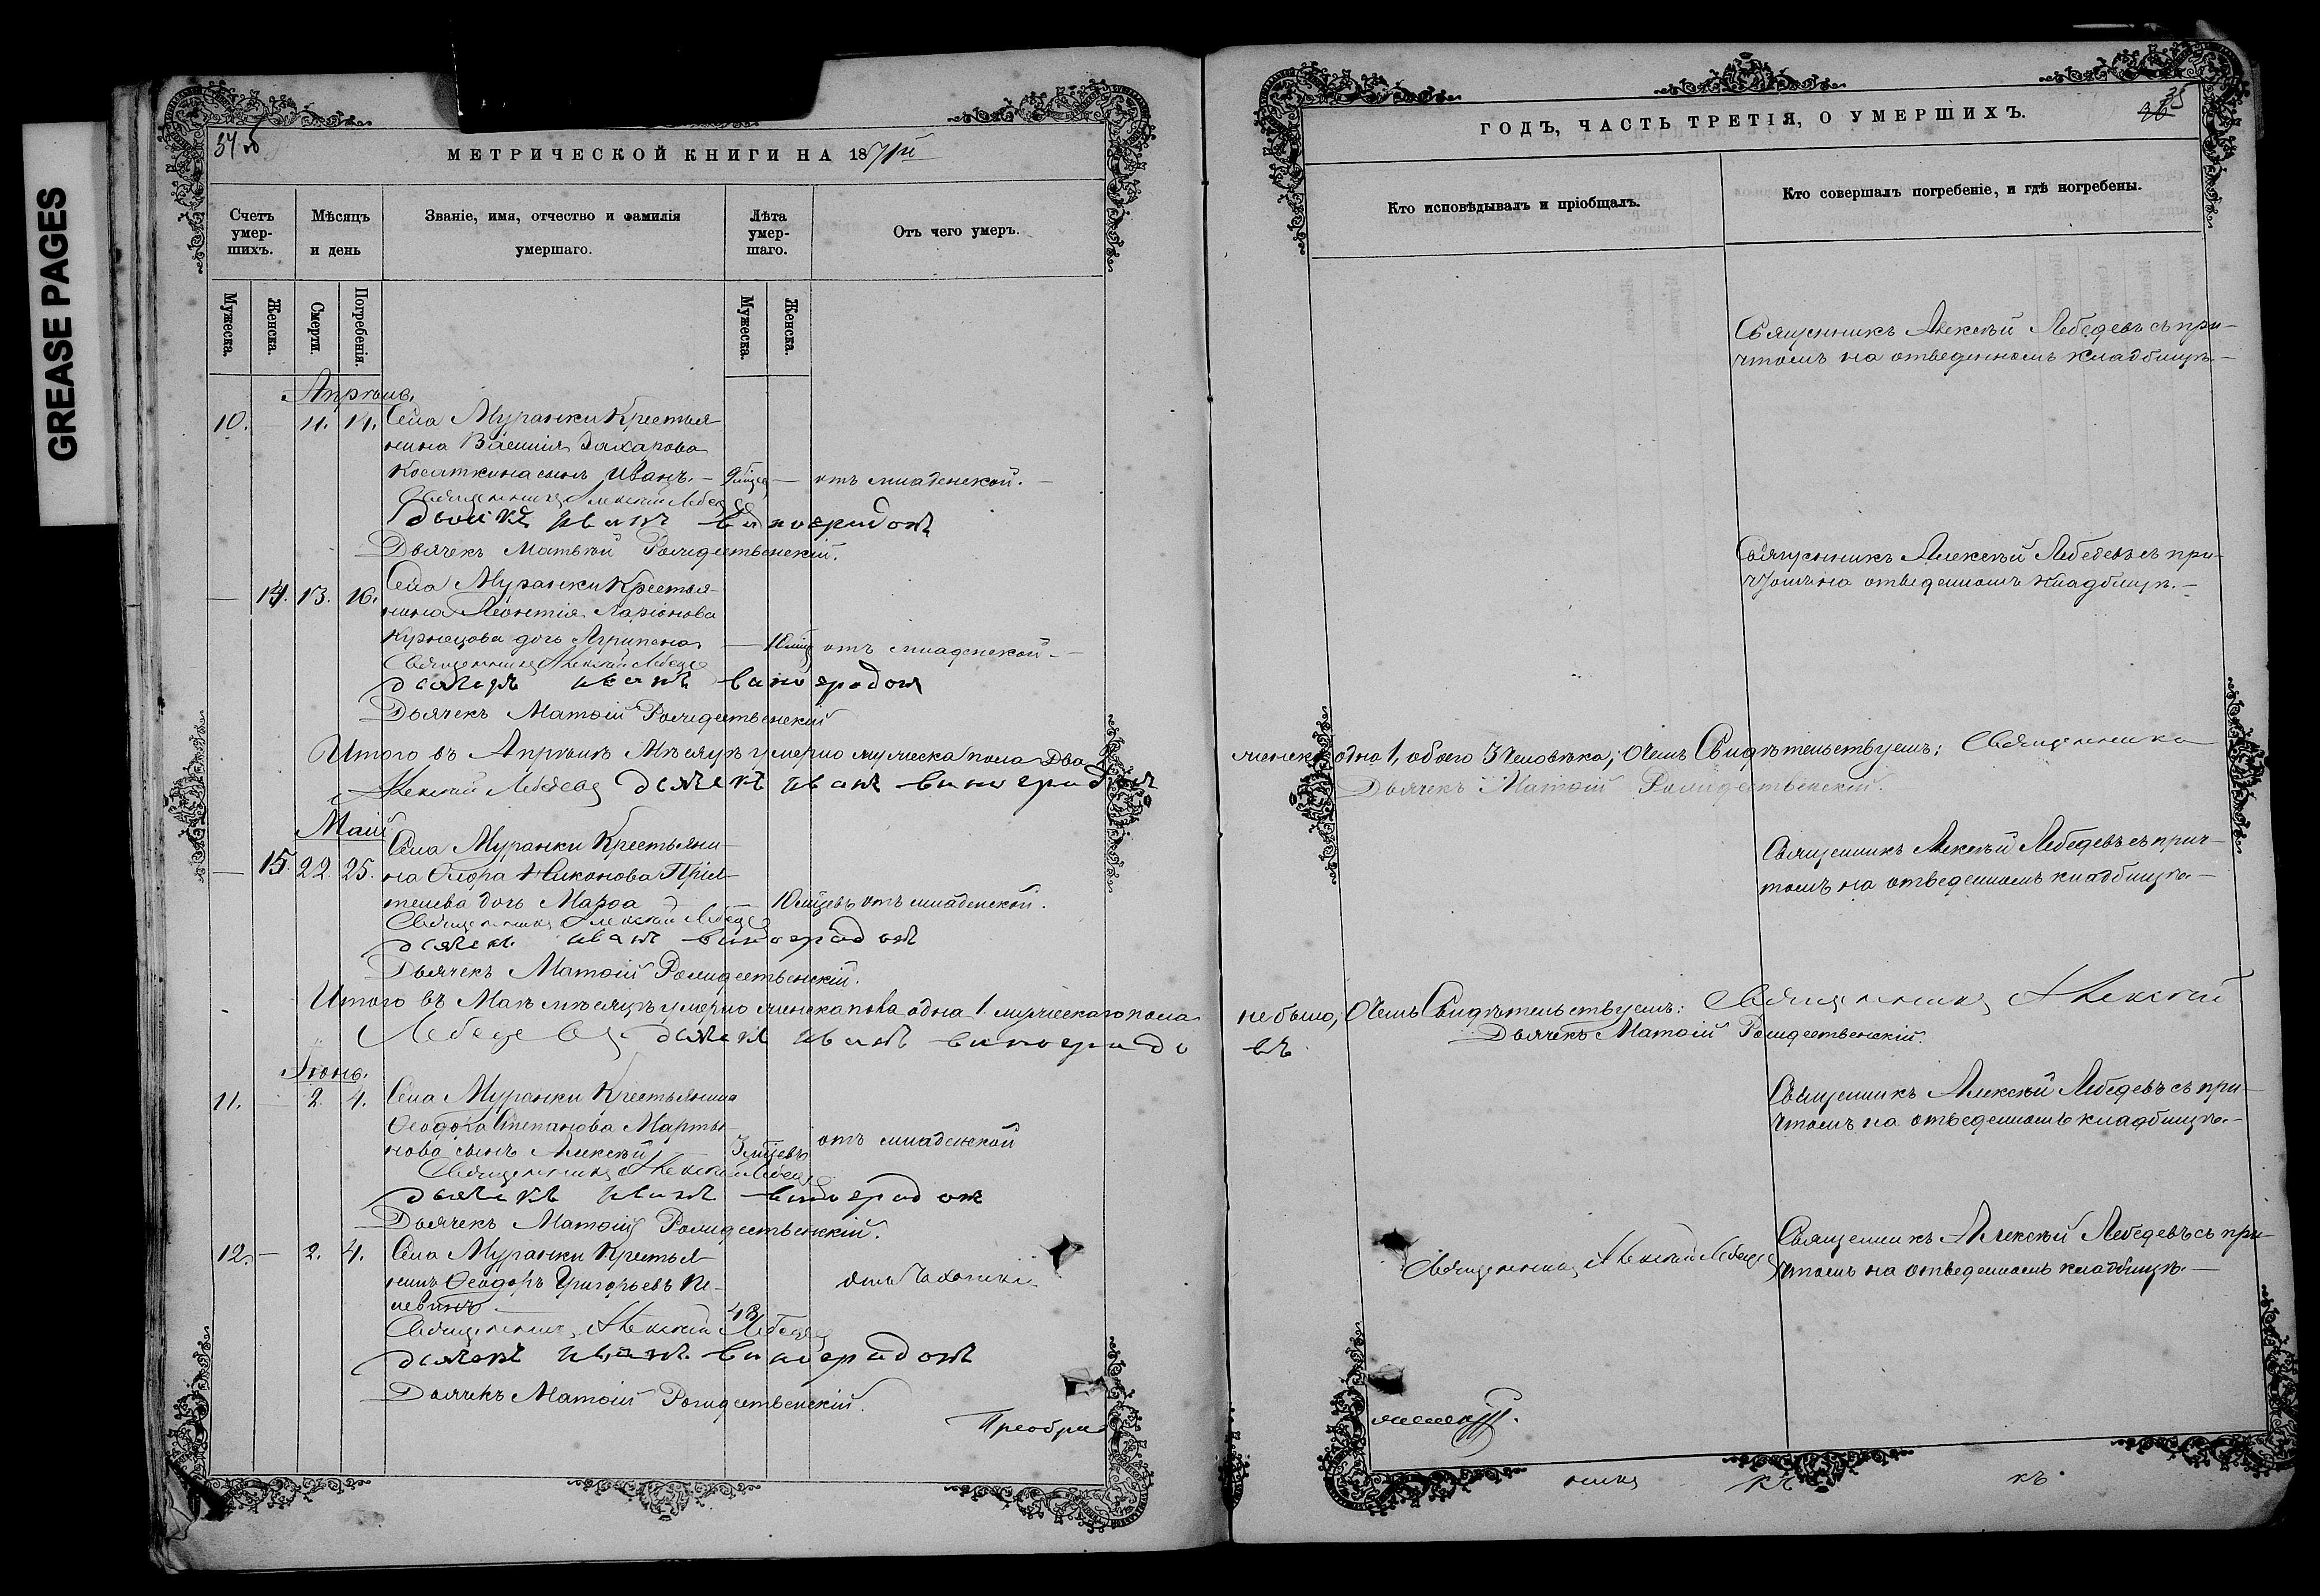 GREASE PAGES
34 об
МЕТРИЧЕСКОЙ КНИГИ НА 1871й
Счетъ умер-шихъ.
Мѣсяцъ и день
Званіе, имя, отчество и фамилія умершаго.
Лѣта умер-шаго.
Отъ чего умеръ.
Мужеска.
Женска.
Смерти.
Погребенія.
Мужеска.
Женска.
Апрѣль.
10. — 11. 14. Села Муранки Крестья-
нина Василія Захарова
Косаткина сынъ Иванъ. — отъ младенской. —
Священникъ Алексій Лебедев
Дьячекъ иванъ виноградовъ
Дьячекъ Матѳій Рождественскій.
— 14. 13. 16. Села Муранки Крестья-
нина Леонтія Ларіонова
Кузнецова дочь Агрипена — отъ младенской. —
Священникъ Алексій Лебедев
дьячекъ иванъ виноградовъ
Дьячекъ Матѳій Рождественскій
Итого въ Апрѣлѣ Мѣсяцѣ умерло мужеска пола два
Алексій Лебедевъ дьячекъ иванъ виноградовъ
Маій
— 15. 22. 25. Села Муранки Крестьяни-
на Флора Никонова Пріл-
телева дочь Марѳа — отъ младенской.
Священникъ Алексій Лебедев
дьячекъ иванъ виноградовъ
Дьячекъ Матѳій Рождественскій.
Итого въ Маѣ мѣсяцѣ умерло женска пола одна 1. мужескаго пола
Лебедевъ дьячекъ иванъ виноградо
Іюнь.
11. — 2. 4. Села Муранки Крестьянина
Ѳеодора Степанова Марты-
нова сынъ Алексѣй — 3 мѣсцевъ отъ младенской
Священникъ Алексій Лебедев
дьячекъ иванъ виноградовъ
Дьячекъ Матѳій Рождественскій.
12. — 2. 4. Села Муранки Крестья-
нинъ Ѳеодоръ Григорьевъ Пе-
левинъ. — 43 отъ Чахотки
Священникъ Алексій Лебедев
дьячекъ иванъ виноградовъ
Дьячекъ Матѳій Рождественскій.
Преобра
35
36
ГОДЪ, ЧАСТЬ ТРЕТІЯ, О УМЕРШИХЪ.
Кто исповѣдывалъ и пріобщалъ.
Кто совершалъ погребеніе, и гдѣ погребены.
Священникъ Алексѣй Лебедевъ съ при-
чтомъ на отведенномъ кладбищѣ. —
Священникъ Алексѣй Лебедевъ съ при-
чтомъ на отведенномъ кладбищѣ. —
женска одна 1, обоего 3 человѣка; О чемъ Свидѣтельствуемъ: Священника
Дьячекъ Матѳій Рождественскій.
Священникъ Алексѣй Лебедевъ съ прич-
томъ на отведенномъ кладбищѣ. —
не было, О чемъ Свидѣтельствуемъ: Священникъ Алексій
Дьячекъ Матѳій Рождественскій.
въ
Священникъ Алексѣй Лебедевъ съ при-
чтомъ на отведенномъ кладбищѣ. —
Священникъ Алексій Лебедев
Священникъ Алексѣй Лебедевъ съ при-
чтомъ на отведенномъ кладбищѣ. —
ника
къ